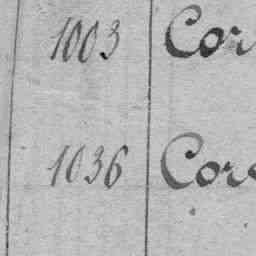 1003 Cor
1036 Core